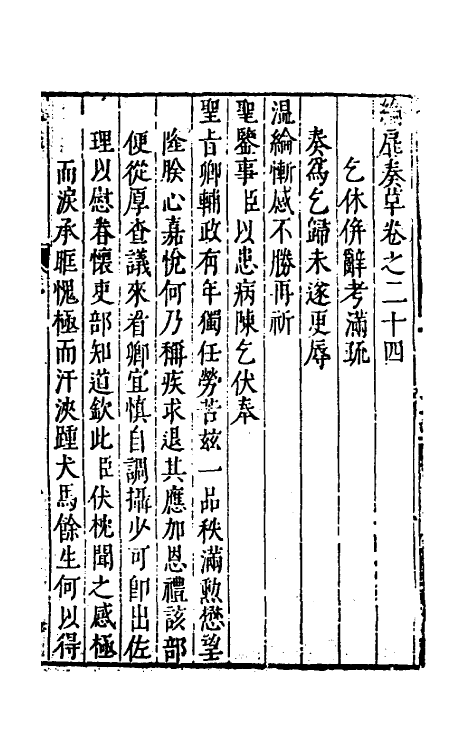 綸扉奏草卷之二十四
乞休併辭考滿疏
奏爲乞歸未遂更辱
温綸慚感不勝再祈
聖鑒事臣以患病陳乞伏奉
聖旨卿輔政有年獨任勞苦兹一品秩滿勲懋望
隆朕心嘉悅何乃稱疾求退其應加恩禮該部
便從厚查議來看卿宜慎自調攝少可卽出佐
理以慰眷懷吏部知道欽此臣伏枕聞之感極
而淚承眶愧極而汗浹踵犬馬餘生何以得